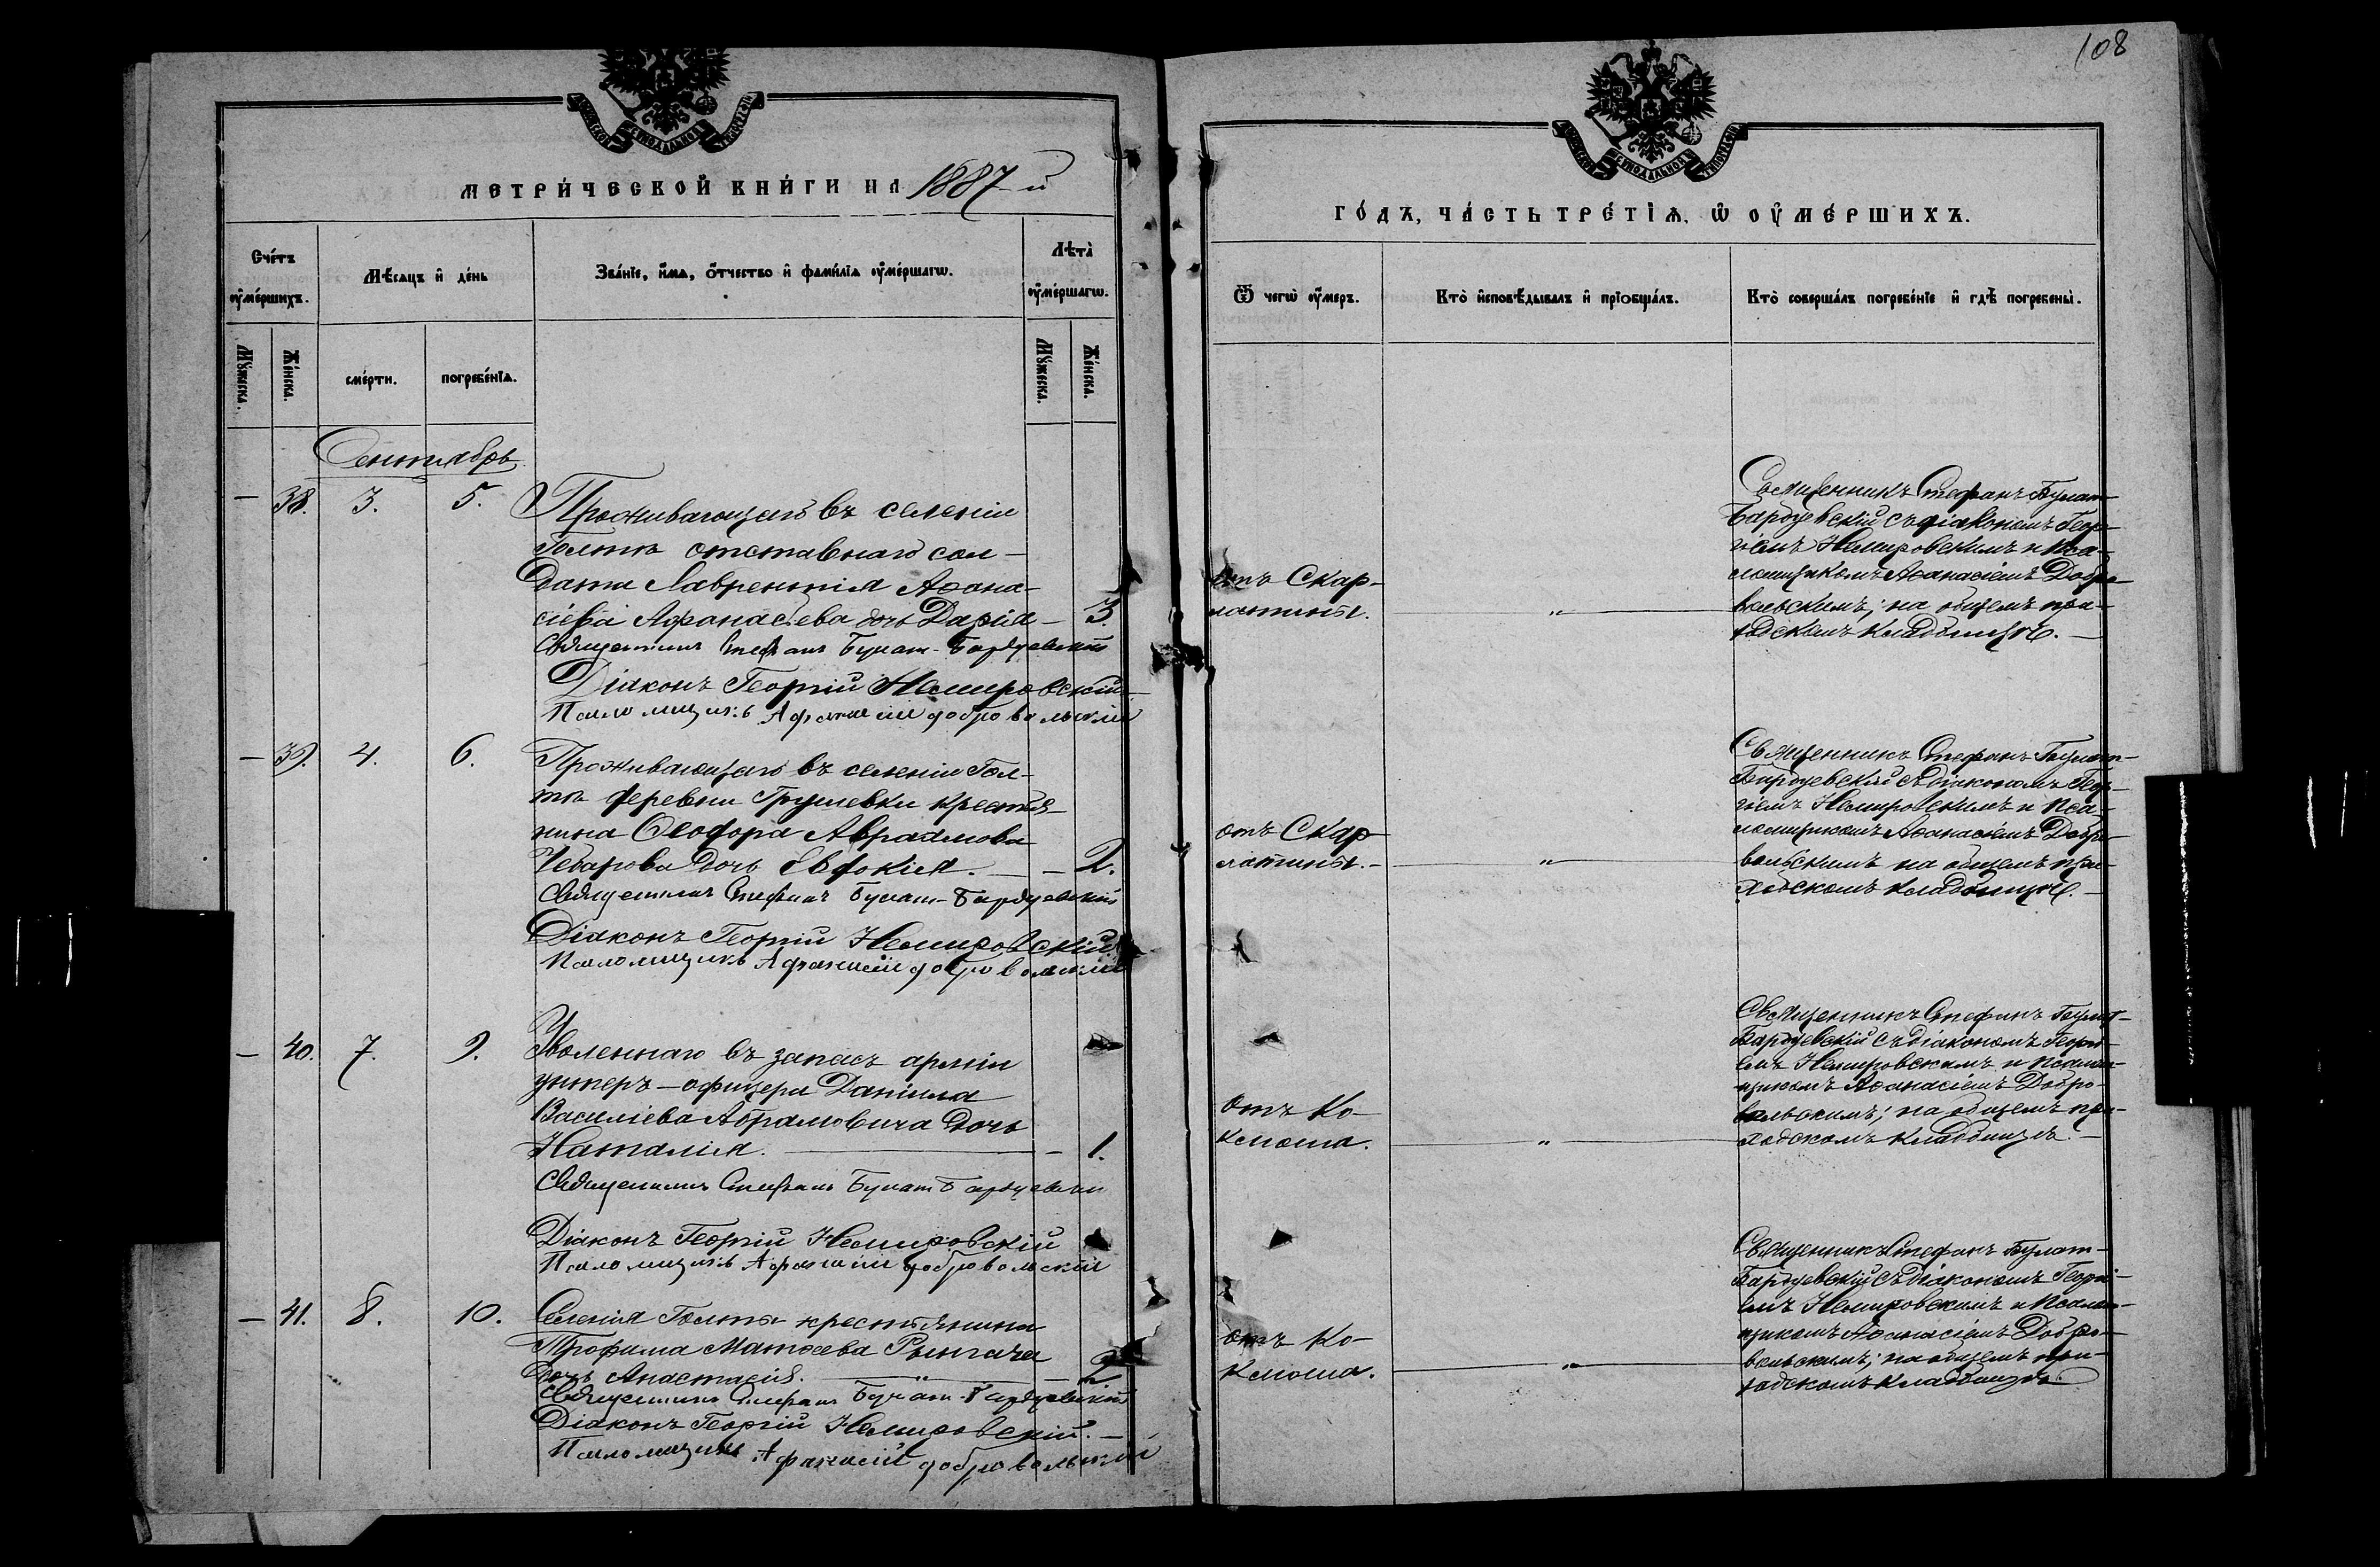 108
МЕТРИ́ЧЕСКОЙ КНИ́ГИ НА 1887 й
ГО́ДЪ, ЧА́СТЬ ТРЕ́ТІѦ, Ѡ ОУ҆МЕ́РШИХЪ.
Сче́тъ оу҆ме́ршихъ.
Мѣ́сѧцъ и҆ де́нь
Зва́нїе, и҆́мѧ, ѻ҆́тчество и҆ фами́лїа оу҆ме́ршагѡ.
Лѣта̀ оу҆ме́ршагѡ.
Ѿ чегѡ̀ оу҆́меръ.
Кто̀ и҆сповѣ́дывалъ и҆ прїобща́лъ.
Кто̀ соверша́лъ погребе́нїе и҆ гдѣ̀ погребены̀.
Мꙋ́жеска.
Же́нска.
сме́рти.
погребе́нїѧ.
Мꙋ́жеска.
Же́нска.
Сентябрь
— 38. 3. 5. Проживающаго въ селеніи
Голтѣ отставнаго сол-
дата Лаврентія Аѳана-
сіева Афанасьева дочь Дарія — 3.
Священникъ Стефанъ Булат-Бардуевскій
Діаконъ Георгій Немировскій
Псаломщикъ Афанасій добровольскій
отъ Скар-
латины.
"
Священникъ Стефанъ Булат-
Бардуевскій съ діакономъ Геор-
гіемъ Немировскимъ и Пса-
ломщикомъ Аѳанасіемъ Добро-
вольскимъ; на общемъ при-
ходскомъ кладбищѣ. —
— 39. 4. 6. Проживающаго въ селеніи Гол-
тѣ деревни Грушевки крестья-
нина Ѳеодора Авраамова
Чебарова дочь Евдокія. — 2.
Священникъ Стефанъ Булат-Бардуевскій
Діаконъ Георгій Немировскій
Псаломщикъ Афанасій добровольскій
отъ Скар
латины. —
"
Священникъ Стефанъ Булат-
Бардуевскій съ діакономъ Геор-
гіемъ Немировскимъ и Пса-
ломщикомъ Аѳанасіемъ Добро-
вольскимъ на общемъ при-
ходскомъ кладбищѣ. —
— 40. 7. 9. Уволеннаго въ запасъ арміи
унтеръ-офицера Даніила
Василіева Абрамовича дочь
Наталія. — 1.
Священникъ Стефанъ Булат Бардуевскій
Діаконъ Георгій Немировскій
Псаломщикъ Афанасій добровольскій
отъ Ко-
клюша.
"
Священникъ Стефанъ Булат-
Бардуевскій съ діакономъ Георгі-
емъ Немировскимъ и Псалом-
щикомъ Аѳанасіемъ Добро-
вольскимъ; на общемъ при-
ходскомъ кладбищѣ. —
— 41. 8. 10. Селенія Голты крестьянина
Трофима Матѳеева
дочь Анастасія. " — 2
Священникъ Стефанъ Булат-Бардуевскій
Діаконъ Георгій Немировскій. —
Псаломщикъ Афанасій добровольскій
отъ Ко-
клюша.
"
Священникъ Стефанъ Булат-
Бардуевскій съ діакономъ Георгі-
емъ Немировскимъ и Псалом-
щикомъ Аѳанасіемъ Добро-
вольскимъ; на общемъ при-
ходскомъ кладбищѣ.